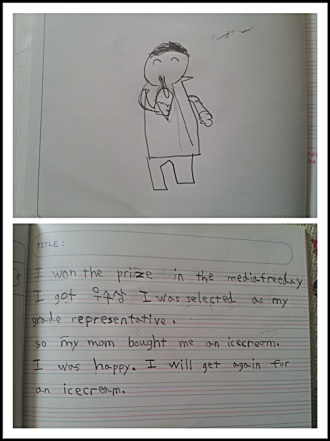 TITLE :
I won the prize in the mediafreeday
I got 우수상 I was selected as my
grade representative.
so my mom bought me an icecream.
I was happy. I will get again for
an icecream.